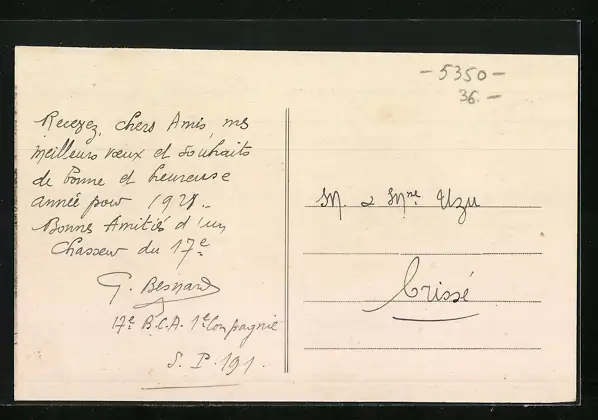 - 5350 -
36. -
Recevez, chers Amis, mes
meilleurs vœux et souhaits
de bonne et heureuse
année pour 1921.
Bonnes Amitiés d'un
Chasseur du 17e
G. Besnard
17e B.C.A. 1e Compagnie
S. P. 191
M. & Mme Uzu
Crissé